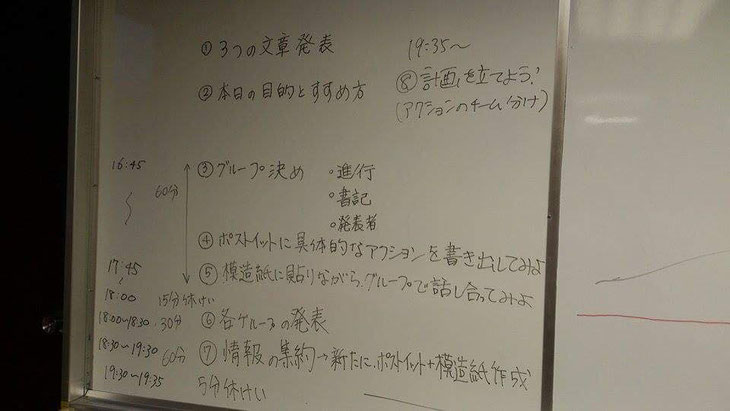 ①3つの文章発表
②本日の目的とすすめ方
16:45
60分
③グループ決め
・進行
・書記
・発表者
④ポストイットに具体的なアクションを書き出してみよ
17:45
⑤模造紙に貼りながら、グループで話し合ってみよ
18:00 15分休けい
18:00~18:30 30分 ⑥各グループの発表
18:30~19:30 60分 ⑦情報の集約→新たに、ポストイット+模造紙作成
19:30~19:35 5分休けい
19:35~
⑧計画を立てよう!
(アクションのチーム分け)